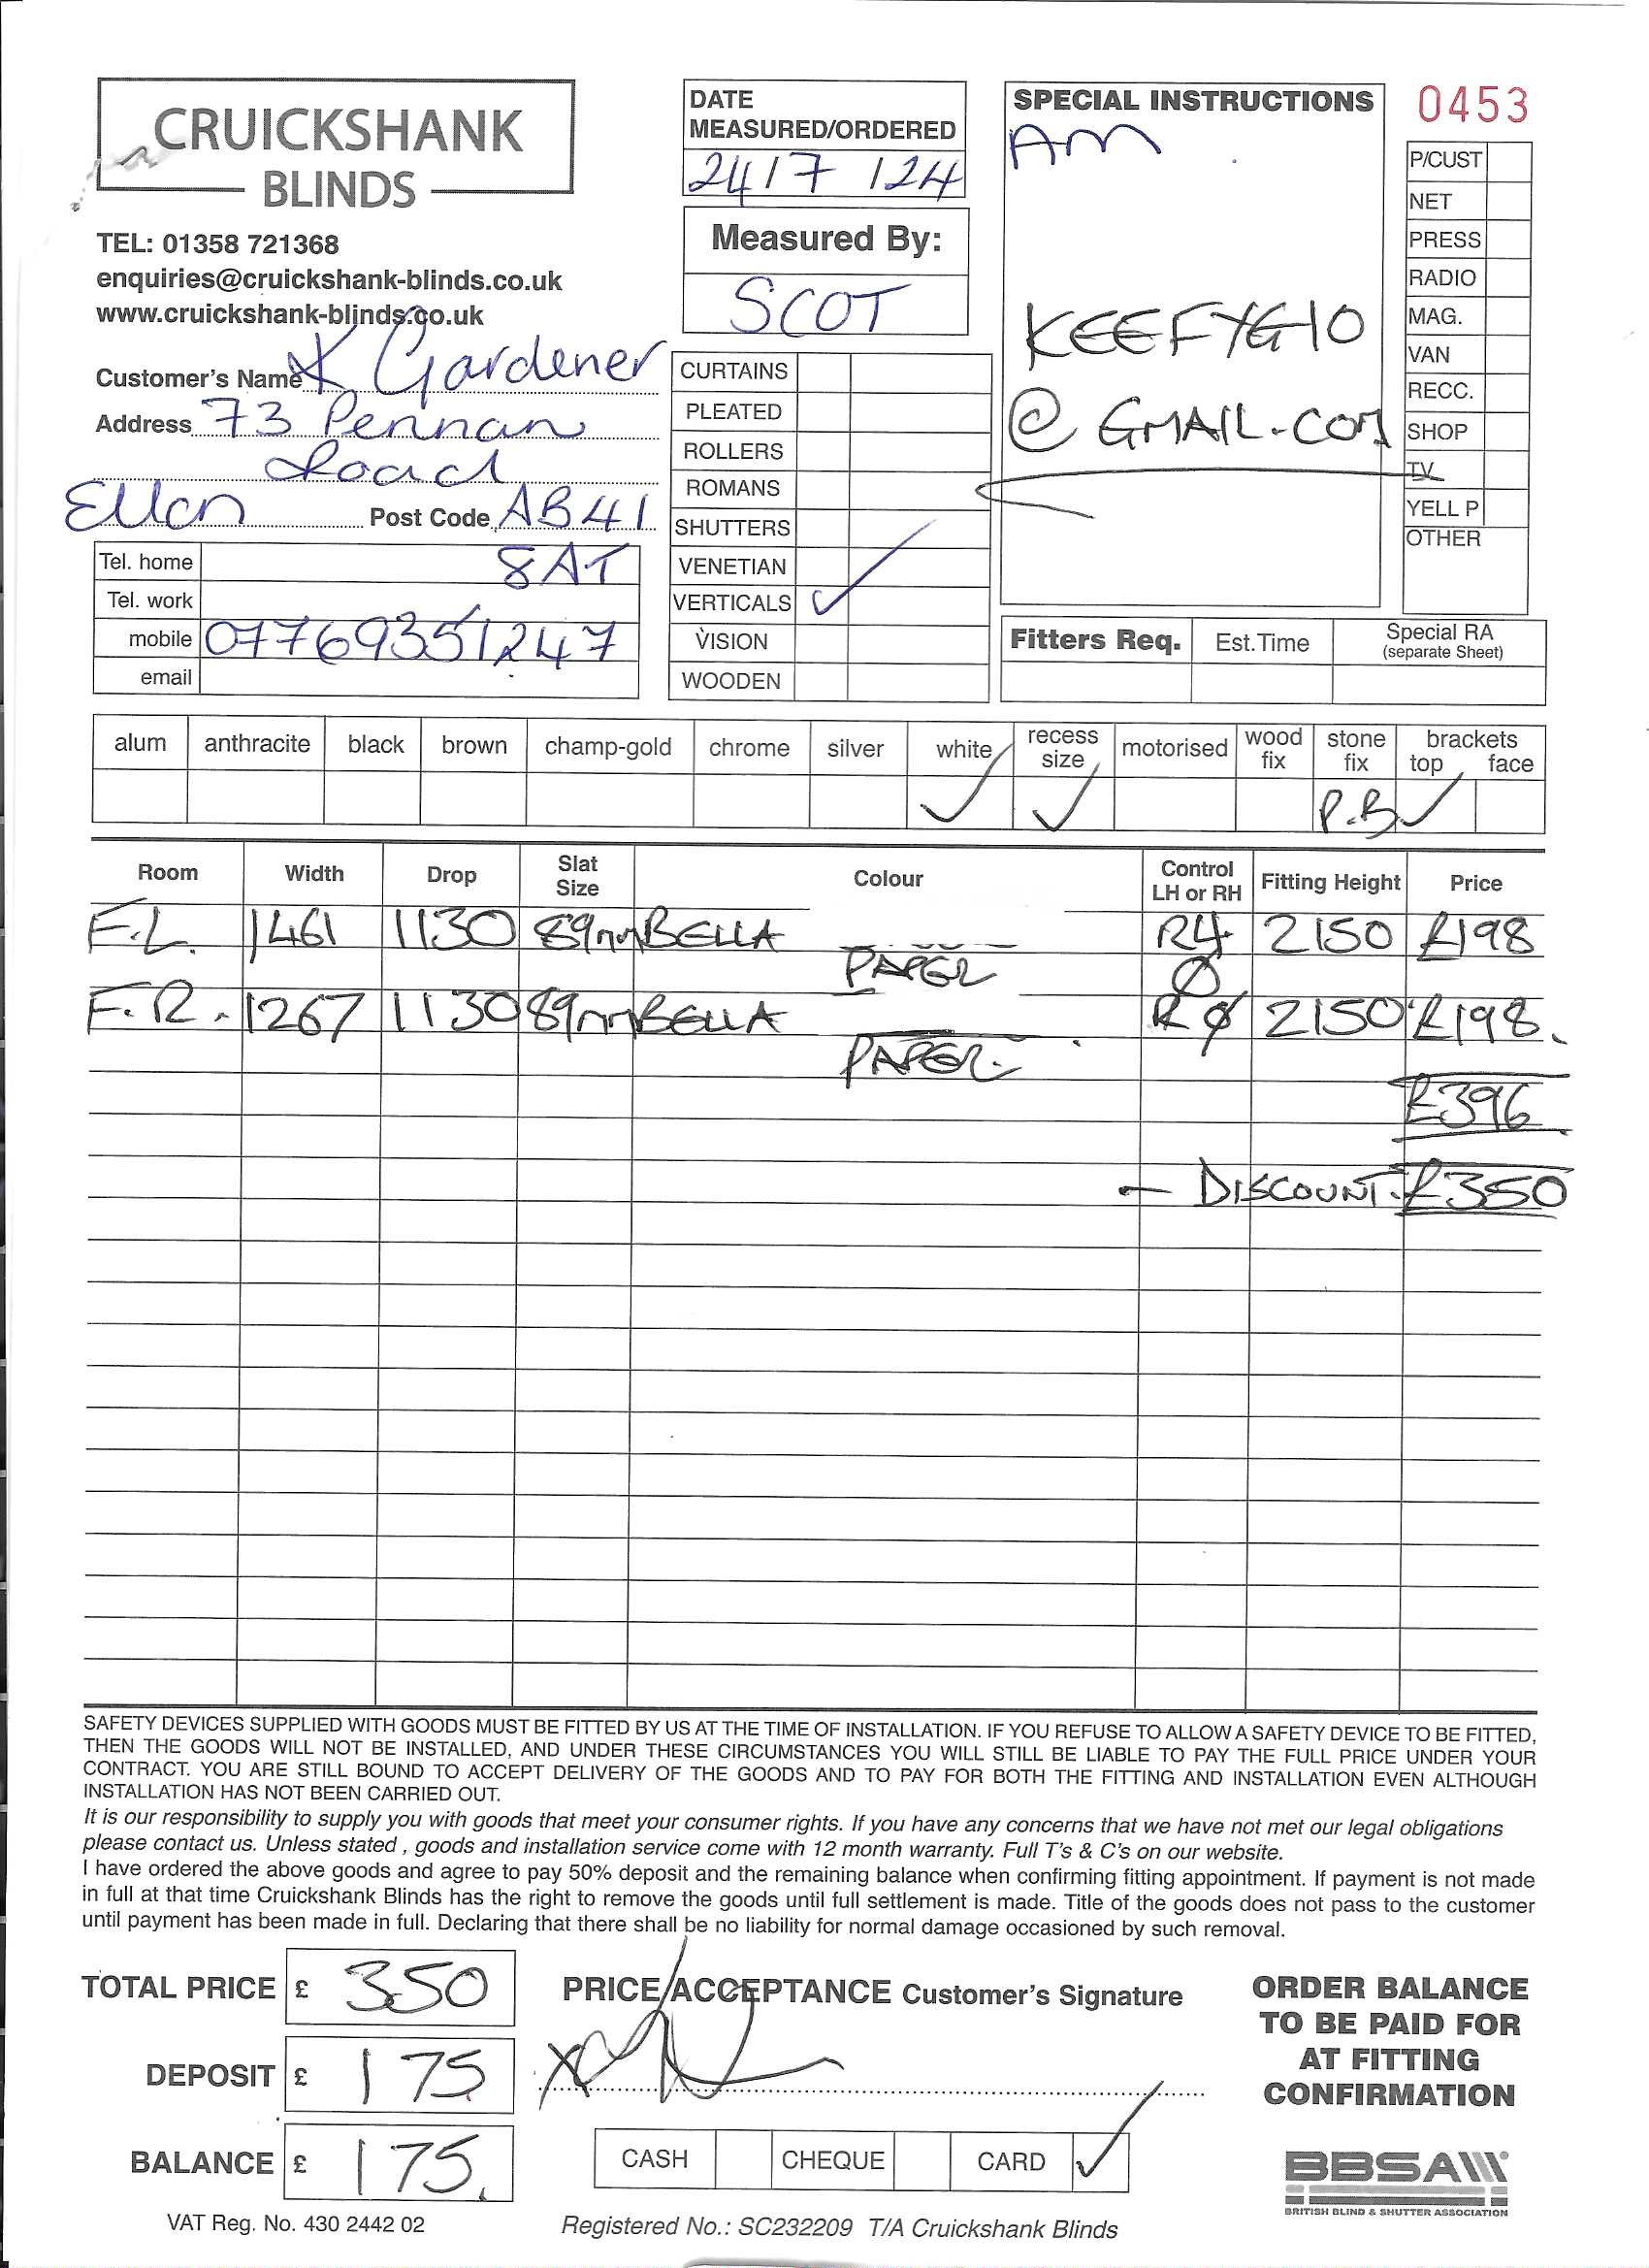 CRUICKSHANK
BLINDS
TEL: 01358 721368
enquiries@cruickshank-blinds.co.uk
www.cruickshank-blinds.co.uk
Customer's Name K Gardener
Address 73 Pennan
Road
Ellon Post Code AB41
Tel. home 8AT
Tel. work
mobile 07769351247
email
DATE
MEASURED/ORDERED
24/7/24
Measured By:
SCOT
CURTAINS
PLEATED
ROLLERS
ROMANS
SHUTTERS
VENETIAN
VERTICALS ✓
VISION
WOODEN
SPECIAL INSTRUCTIONS
AM
KEEFYG10
@GMAIL.COM
0453
P/CUST
NET
PRESS
RADIO
MAG.
VAN
RECC.
SHOP
TV
YELL P
OTHER
Fitters Req. Est.Time Special RA
(separate Sheet)
alum anthracite black brown champ-gold chrome silver white recess size motorised wood fix stone fix brackets top face
✓ ✓ P.B ✓
Room Width Drop Slat Size Colour Control LH or RH Fitting Height Price
F.L. 1461 1130 89mm BELLA R4 2150 £198
PAPER
F.R. 1267 1130 89mm BELLA R 2150 £198.
PAPER.
£396
- DISCOUNT. £350
SAFETY DEVICES SUPPLIED WITH GOODS MUST BE FITTED BY US AT THE TIME OF INSTALLATION. IF YOU REFUSE TO ALLOW A SAFETY DEVICE TO BE FITTED,
THEN THE GOODS WILL NOT BE INSTALLED, AND UNDER THESE CIRCUMSTANCES YOU WILL STILL BE LIABLE TO PAY THE FULL PRICE UNDER YOUR
CONTRACT. YOU ARE STILL BOUND TO ACCEPT DELIVERY OF THE GOODS AND TO PAY FOR BOTH THE FITTING AND INSTALLATION EVEN ALTHOUGH
INSTALLATION HAS NOT BEEN CARRIED OUT.
It is our responsibility to supply you with goods that meet your consumer rights. If you have any concerns that we have not met our legal obligations
please contact us. Unless stated , goods and installation service come with 12 month warranty. Full T's & C's on our website.
I have ordered the above goods and agree to pay 50% deposit and the remaining balance when confirming fitting appointment. If payment is not made
in full at that time Cruickshank Blinds has the right to remove the goods until full settlement is made. Title of the goods does not pass to the customer
until payment has been made in full. Declaring that there shall be no liability for normal damage occasioned by such removal.
TOTAL PRICE £ 350
DEPOSIT £ 175
BALANCE £ 175.
PRICE/ACCEPTANCE Customer's Signature
CASH CHEQUE CARD ✓
ORDER BALANCE
TO BE PAID FOR
AT FITTING
CONFIRMATION
BBSA
BRITISH BLIND & SHUTTER ASSOCIATION
VAT Reg. No. 430 2442 02
Registered No.: SC232209 T/A Cruickshank Blinds